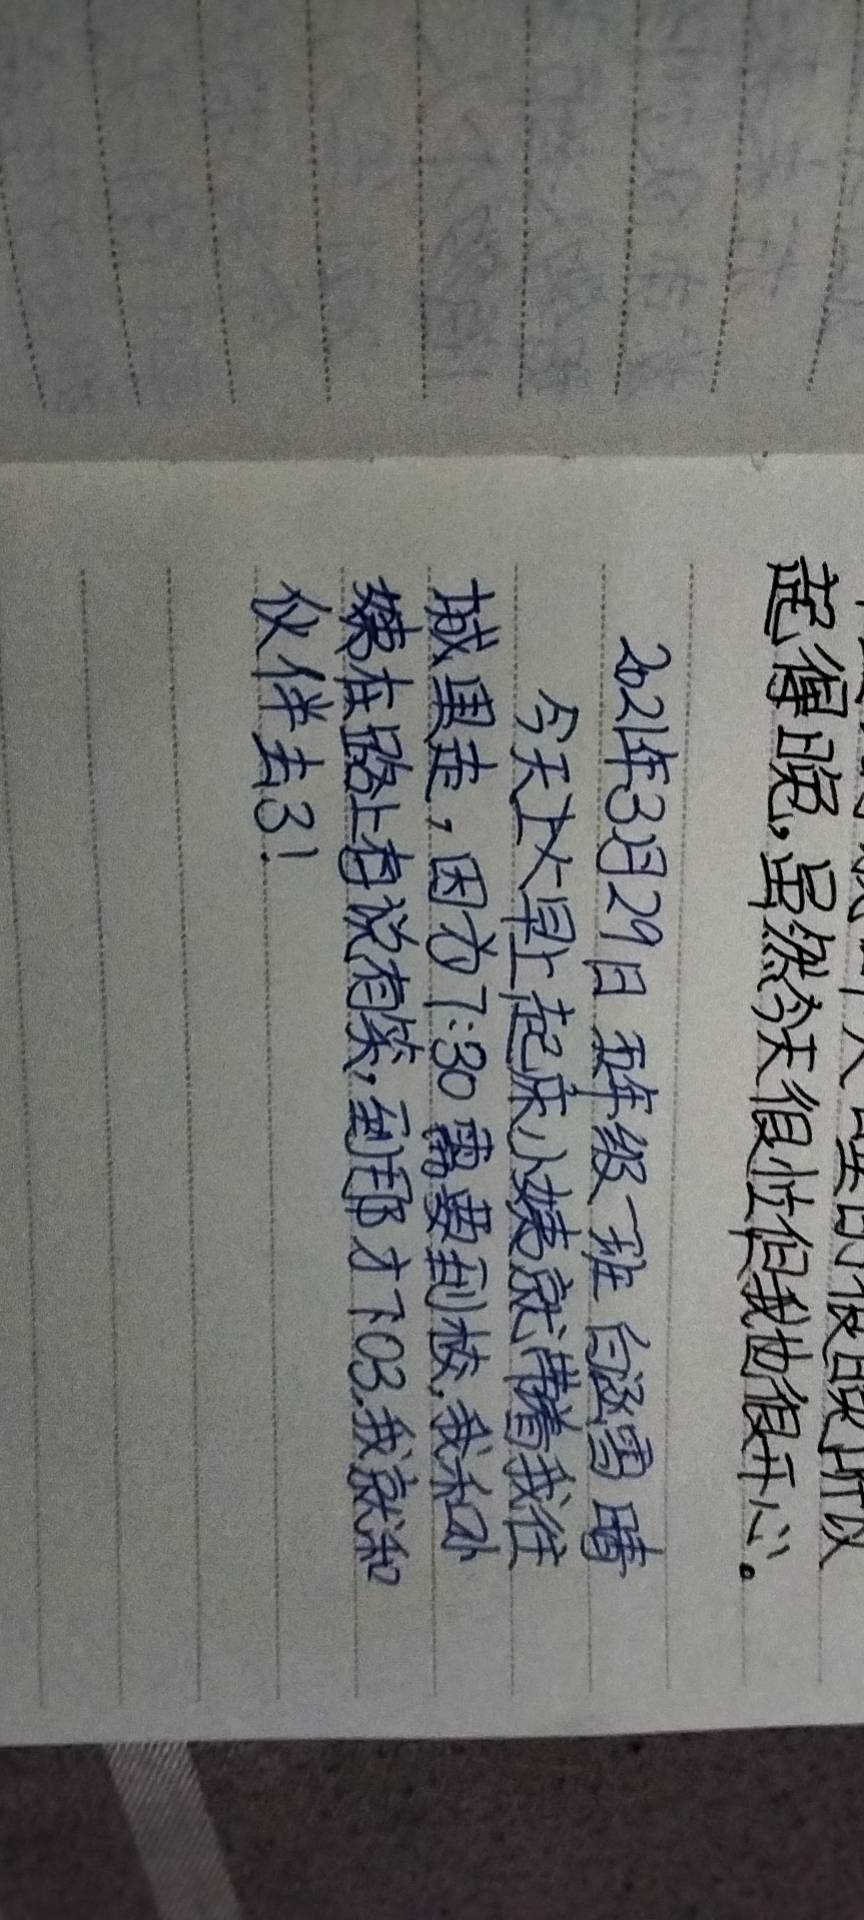 睡的很晚所以
起得晚,虽然今天很忙但我也很开心。
2021年3月29日 五年级一班 白涵雪 晴
今天大早上起床小姨就带着我往
城里走,因为7:30需要到校,我和小
姨在路上有说有笑,到那才7:03.我就和
伙伴去了!